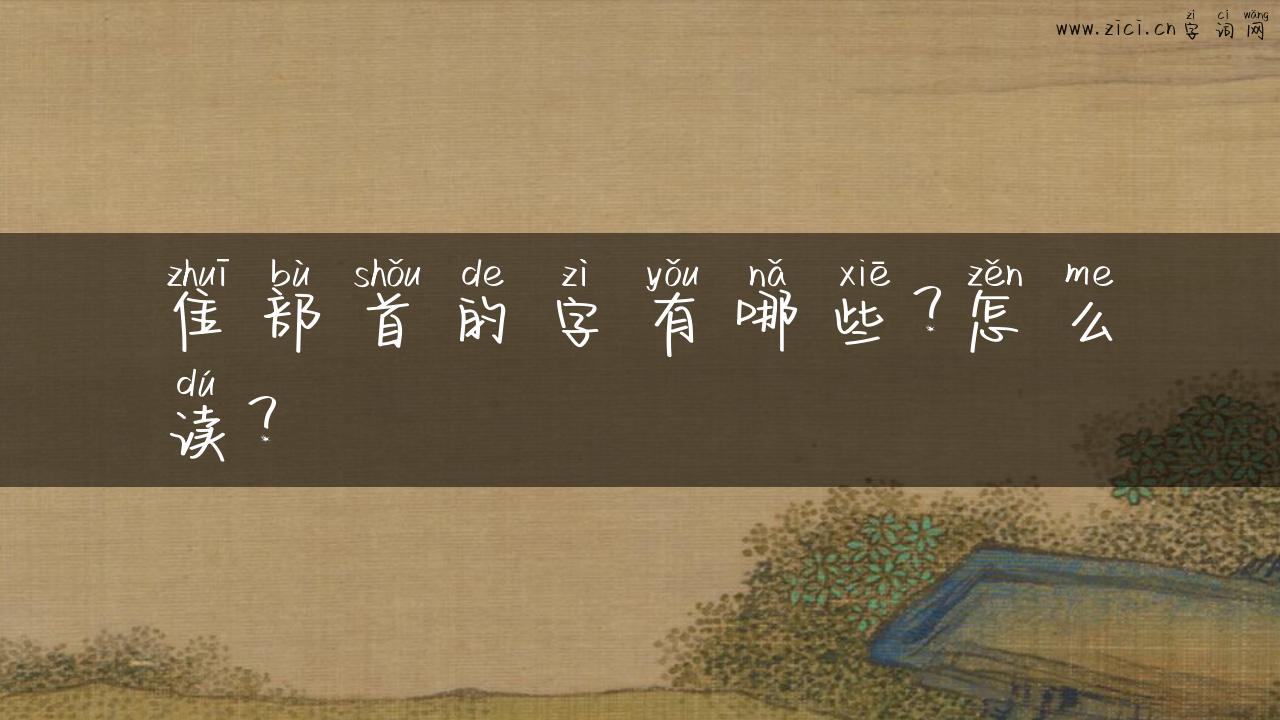 zì cí wǎng
www.zici.cn 字词网
zhuī bù shǒu de zì yǒu nǎ xiē zěn me
隹部首的字有哪些?怎么
dú
读?